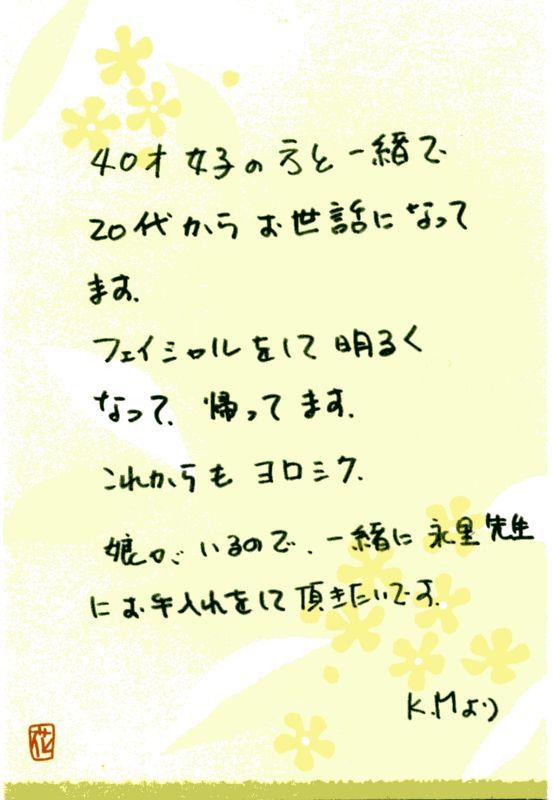 40才女子の方と一緒で
20代からお世話になって
ます.
フェイシャルをして明るく
なって、帰ってます.
これからもヨロシク.
娘がいるので、一緒に永里先生
にお手入れをして頂きたいです.
K.Mより
花